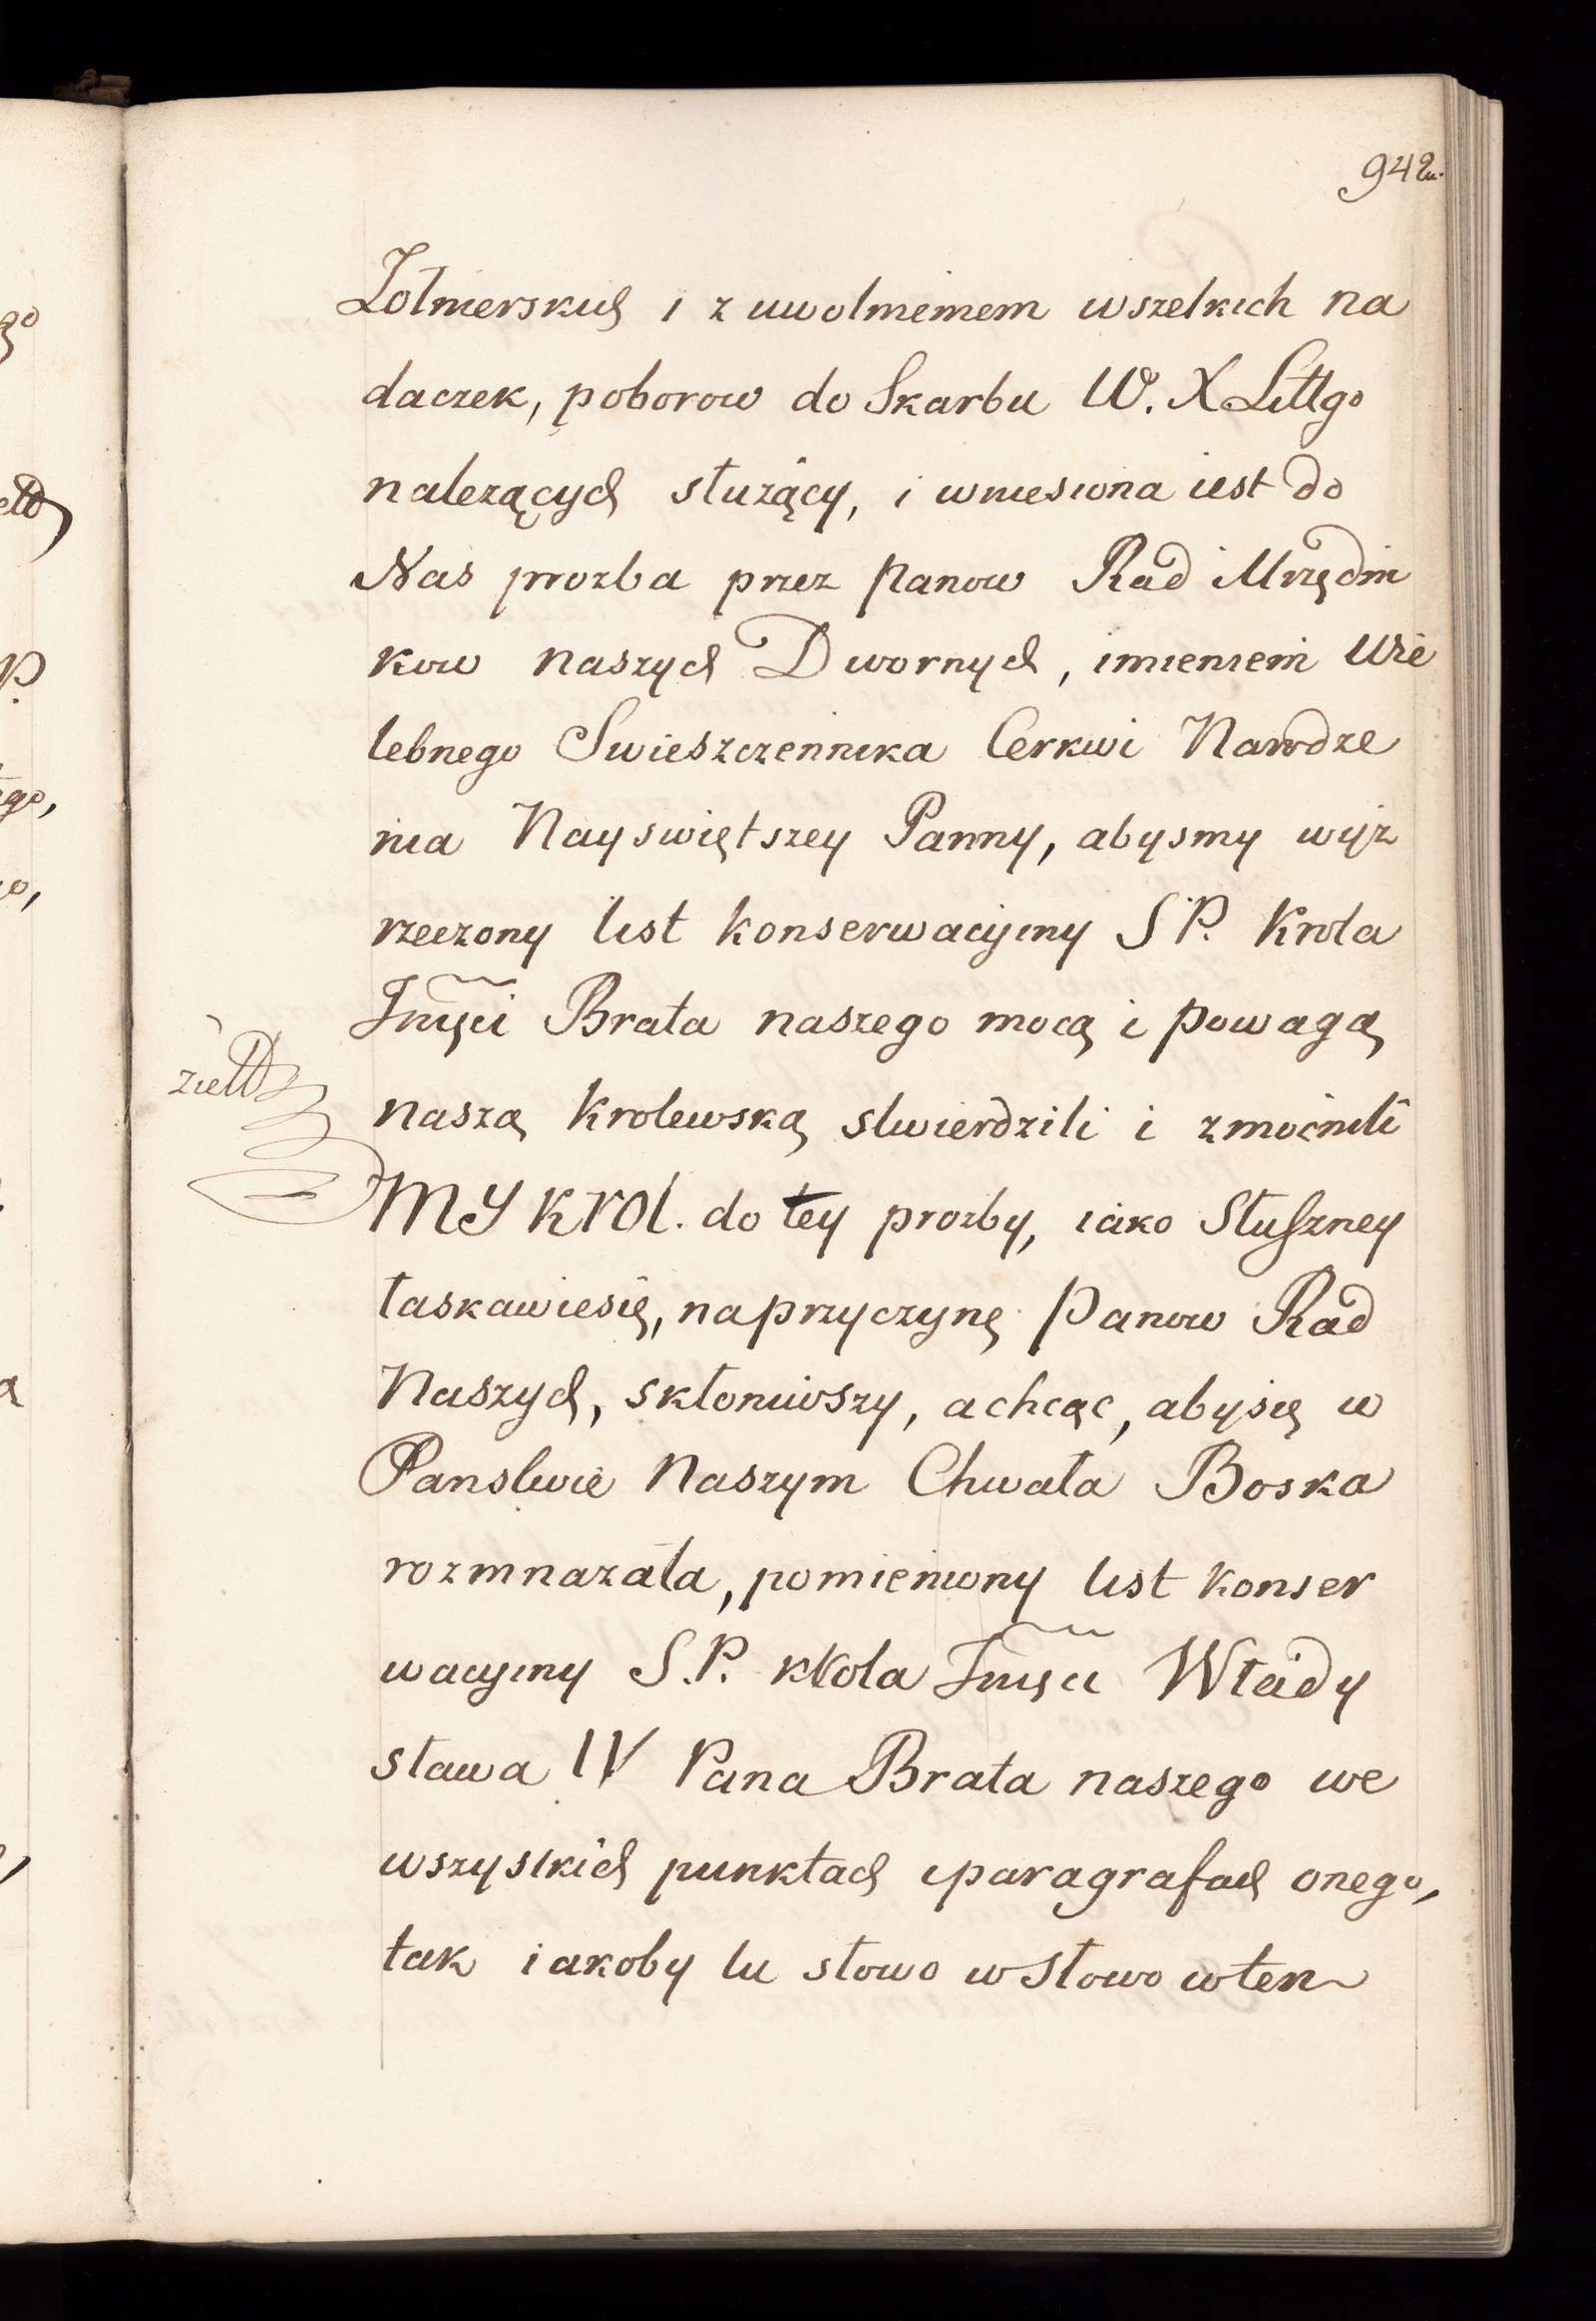 942
Zołnierskich i z uwolnieniem wszelkich na
daczek, poborow do Skarbu W. X Littgo
nalezących służący, i wniesiona iest do
Nas prozba przez Panow Rad i Urzędni
kow naszych Dwornych, imieniem Wie
lebnego Swieszczennika Cerkwi Narodze
nia Nayswiętszey Panny, abysmy wyż
rzeczony list konserwacyiny S P. Krola
Jmści Brata naszego mocą i powagą
naszą Krolewską stwierdzili i zmocnili
MY KROL. do tey prozby, iako Słuszney
łaskawiesię, naprzyczynę Panow Rad
Naszych, skłoniwszy, a chcąc, abysię w
Panstwie Naszym Chwała Boska
rozmnazała, pomieniony list konser
wacyiny S.P. kRola Jmści Włady
sława IV Pana Brata naszego we
wszystkich punktach iparagrafach onego,
tak iakoby tu słowo wSłowo wten